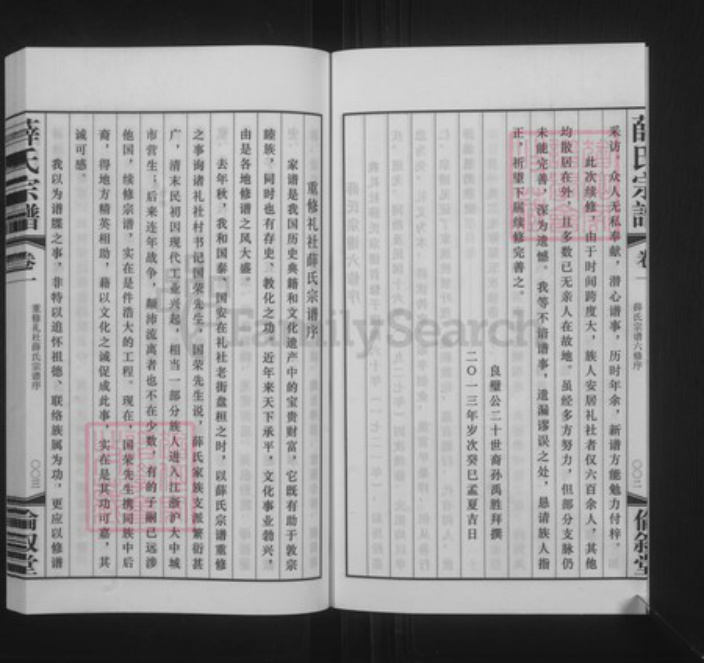 薛氏宗譜
卷一
薛氏宗谱六修序
〇〇二
倫叙堂
采访，众人无私奉献，潜心谱事，历时年余，新谱方能勉力付梓。
此次续修，由于时间跨度大，族人安居礼社者仅六百余人，其他
均散居在外，且多数已无亲人在故地。虽经多方努力，但部分支脉仍
未能完善，深为遗憾。我等不谙谱事，遗漏谬误之处，恳请族人指
正，祈望下届续修完善之。
良璧公二十世裔孙禹胜拜撰
二〇一三年岁次癸巳孟夏吉日
重修礼社薛氏宗谱序
家谱是我国历史典籍和文化遗产中的宝贵财富，它既有助于敦宗
睦族，同时也有存史、教化之功，近年来天下承平，文化事业勃兴，
由是各地修谱之风大盛。
去年秋，我和国泰、国安在礼社老街盘桓之时，以薛氏宗谱重修
之事询诸礼社村书记国荣先生，国荣先生说，薛氏家族支派繁衍甚
广，清末民初因现代工业兴起，相当一部分族人进入江浙沪大中城
市营生；后来连年战争，颠沛流离者也不在少数，有的子嗣已远涉
他国，续修宗谱，实在是件浩大的工程。现在，国荣先生携同族中后
裔，得地方精英相助，藉以文化之诚促成此事，实在是其功可嘉，其
诚可感。
我以为谱牒之事，非特以追怀祖德、联络族属为功，更应以修谱
薛氏宗譜
卷一
重修礼社薛氏宗谱序
〇〇三
倫叙堂
FamilySearch